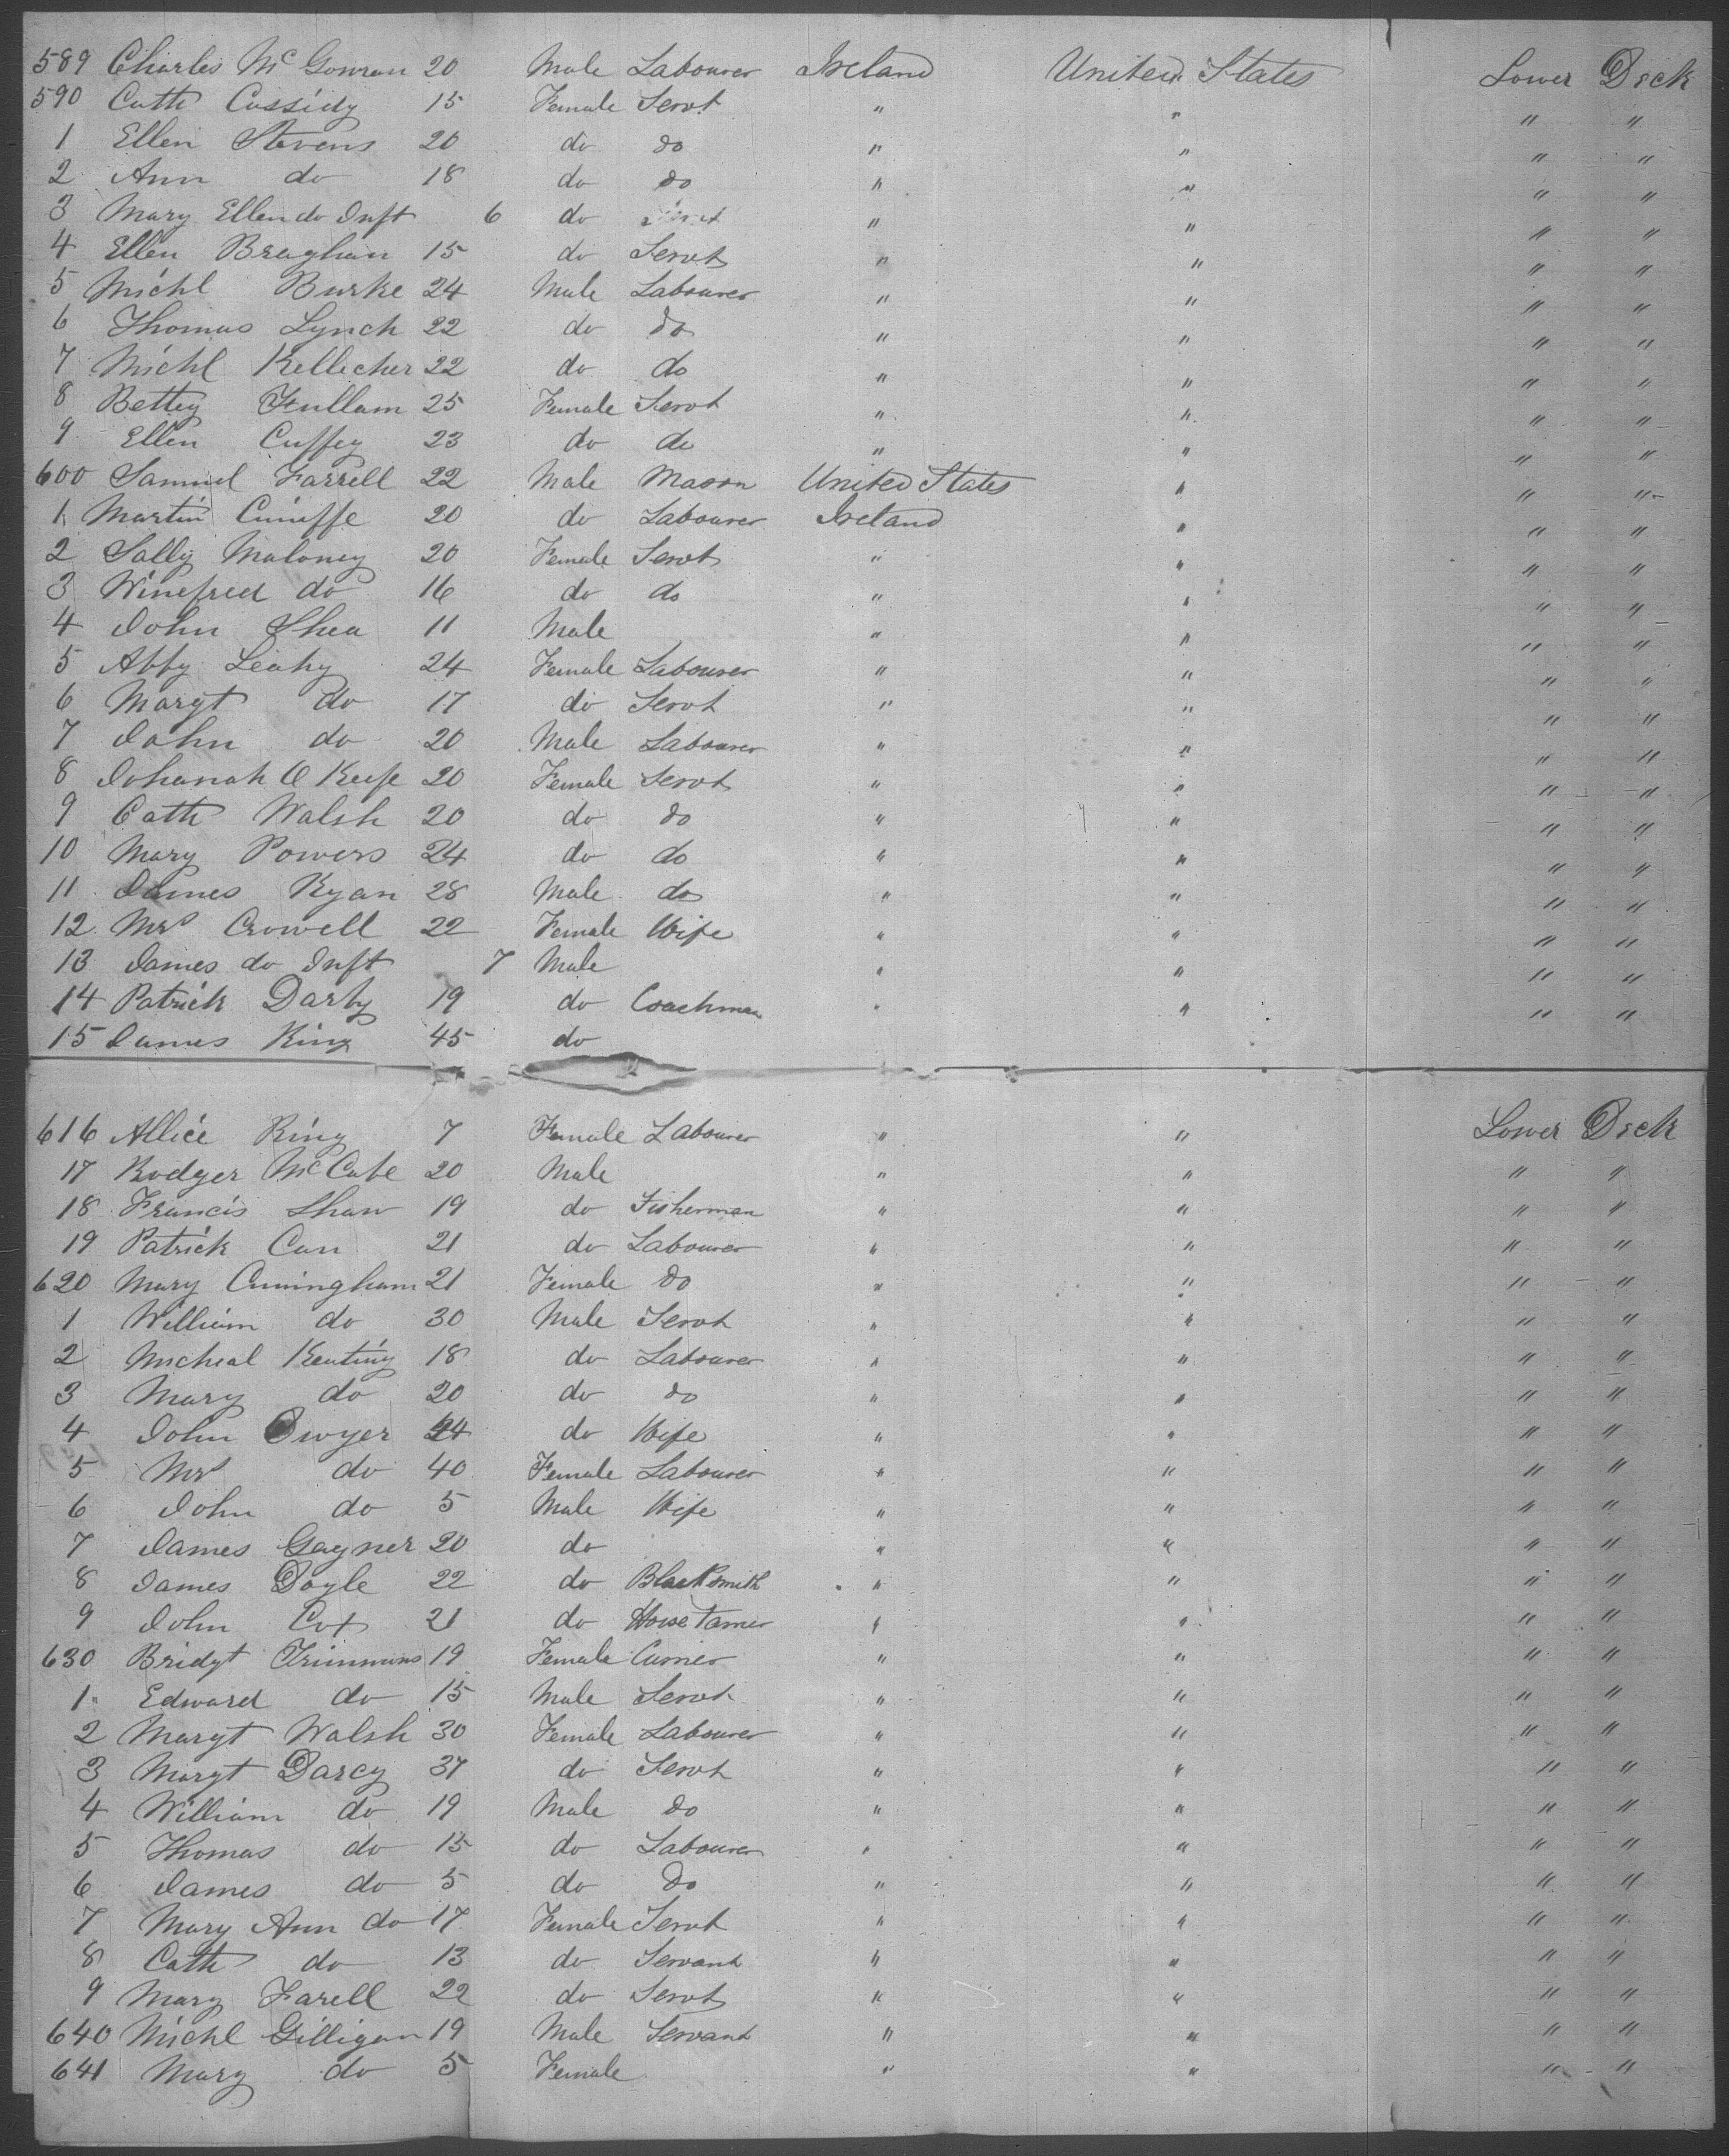 589 Charles Mc Gowran 20 Male Labourer Ireland United States Lower Deck
590 Cath Cassidy 15 Female Servt " " " "
1 Ellen Stevens 20 do do " " " "
2 Ann do 18 do do " " " "
3 Mary Ellen do Inft 6 do " " " "
4 Ellen Breghan 15 do Servt " " " "
5 Michl Burke 24 Male Labourer " " " "
6 Thomas Lynch 22 do do " " " "
7 Michl Kellecher 22 do do " " " "
8 Bettey Fullam 25 Female Servt " " " "
9 Ellen Cuffey 23 do do " " " "
600 Samuel Farrell 22 Male Mason United States " " "
1 Martin Cuniffe 20 do Labourer Ireland " " "
2 Sally Maloney 20 Female Servt " " " "
3 Winefred do 16 do do " " " "
4 John Shea 11 Male " " " "
5 Abby Leahy 24 Female Labourer " " " "
6 Margt do 17 do Servt " " " "
7 John do 20 Male Labourer " " " "
8 Johanah O Keefe 20 Female Servt " " " "
9 Cath Walsh 20 do do " " " "
10 Mary Powers 24 do do " " " "
11 James Ryan 28 Male do " " " "
12 Mrs Crowell 22 Female Wife " " " "
13 James do Inft 7 Male " " " "
14 Patrick Darby 19 do Coachman " " " "
15 James King 45 do
616 Allice King 7 Female Labourer " " Lower Deck
17 Rodger McCabe 20 Male " " " "
18 Francis Shaw 19 do Fisherman " " " "
19 Patrick Can 21 do Labourer " " " "
620 Mary Cuningham 21 Female do " " " "
1 William do 30 Male Servt " " " "
2 Micheal Keating 18 do Labourer " " " "
3 Mary do 20 do do " " " "
4 John Dwyer 24 do Wife " " " "
5 Mrs do 40 Female Labourer " " " "
6 John do 5 Male Wife " " " "
7 James Gayner 20 do " " " "
8 James Doyle 22 do Blacksmith " " " "
9 John Cox 21 do Horse Tamer " " " "
630 Bridgt Trimmins 19 Female Currier " " " "
1 Edward do 15 Male Servt " " " "
2 Margt Walsh 30 Female Labourer " " " "
3 Margt Darcy 37 do Servt " " " "
4 William do 19 Male do " " " "
5 Thomas do 15 do Labourer " " " "
6 James do 5 do do " " " "
7 Mary Ann do 17 Female Servt " " " "
8 Cath do 13 do Servant " " " "
9 Mary Farell 22 do Servt " " " "
640 Michl Gilligan 19 Male Servant " " " "
641 Mary do 5 Female " " " "